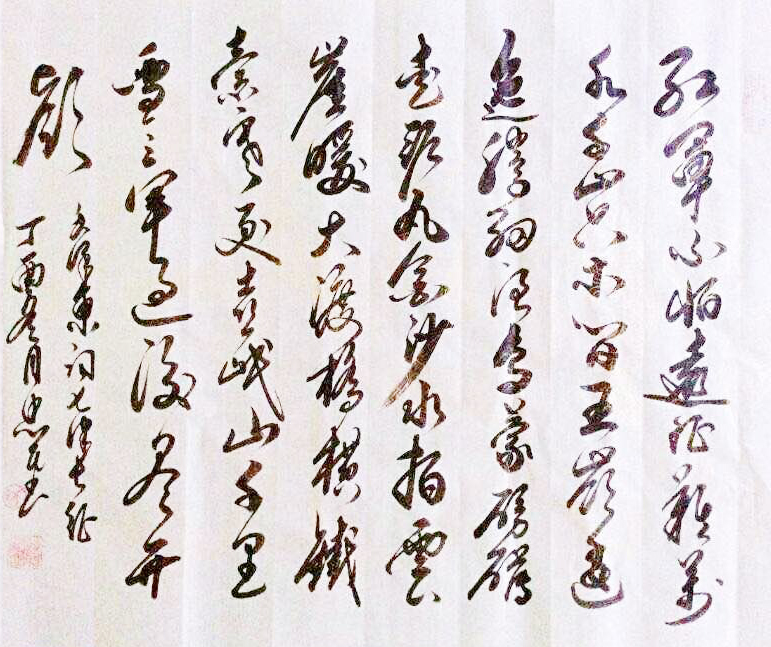 红軍不怕遠征難萬
水千山只等闲五嶺逶
迤腾细浪乌蒙磅礴
走泥丸金沙水拍雲
崖暖大渡橋横鐵
索寒更喜岷山千里
雪三軍过後尽开
颜
毛泽东词七律长征
丁酉冬月忠书